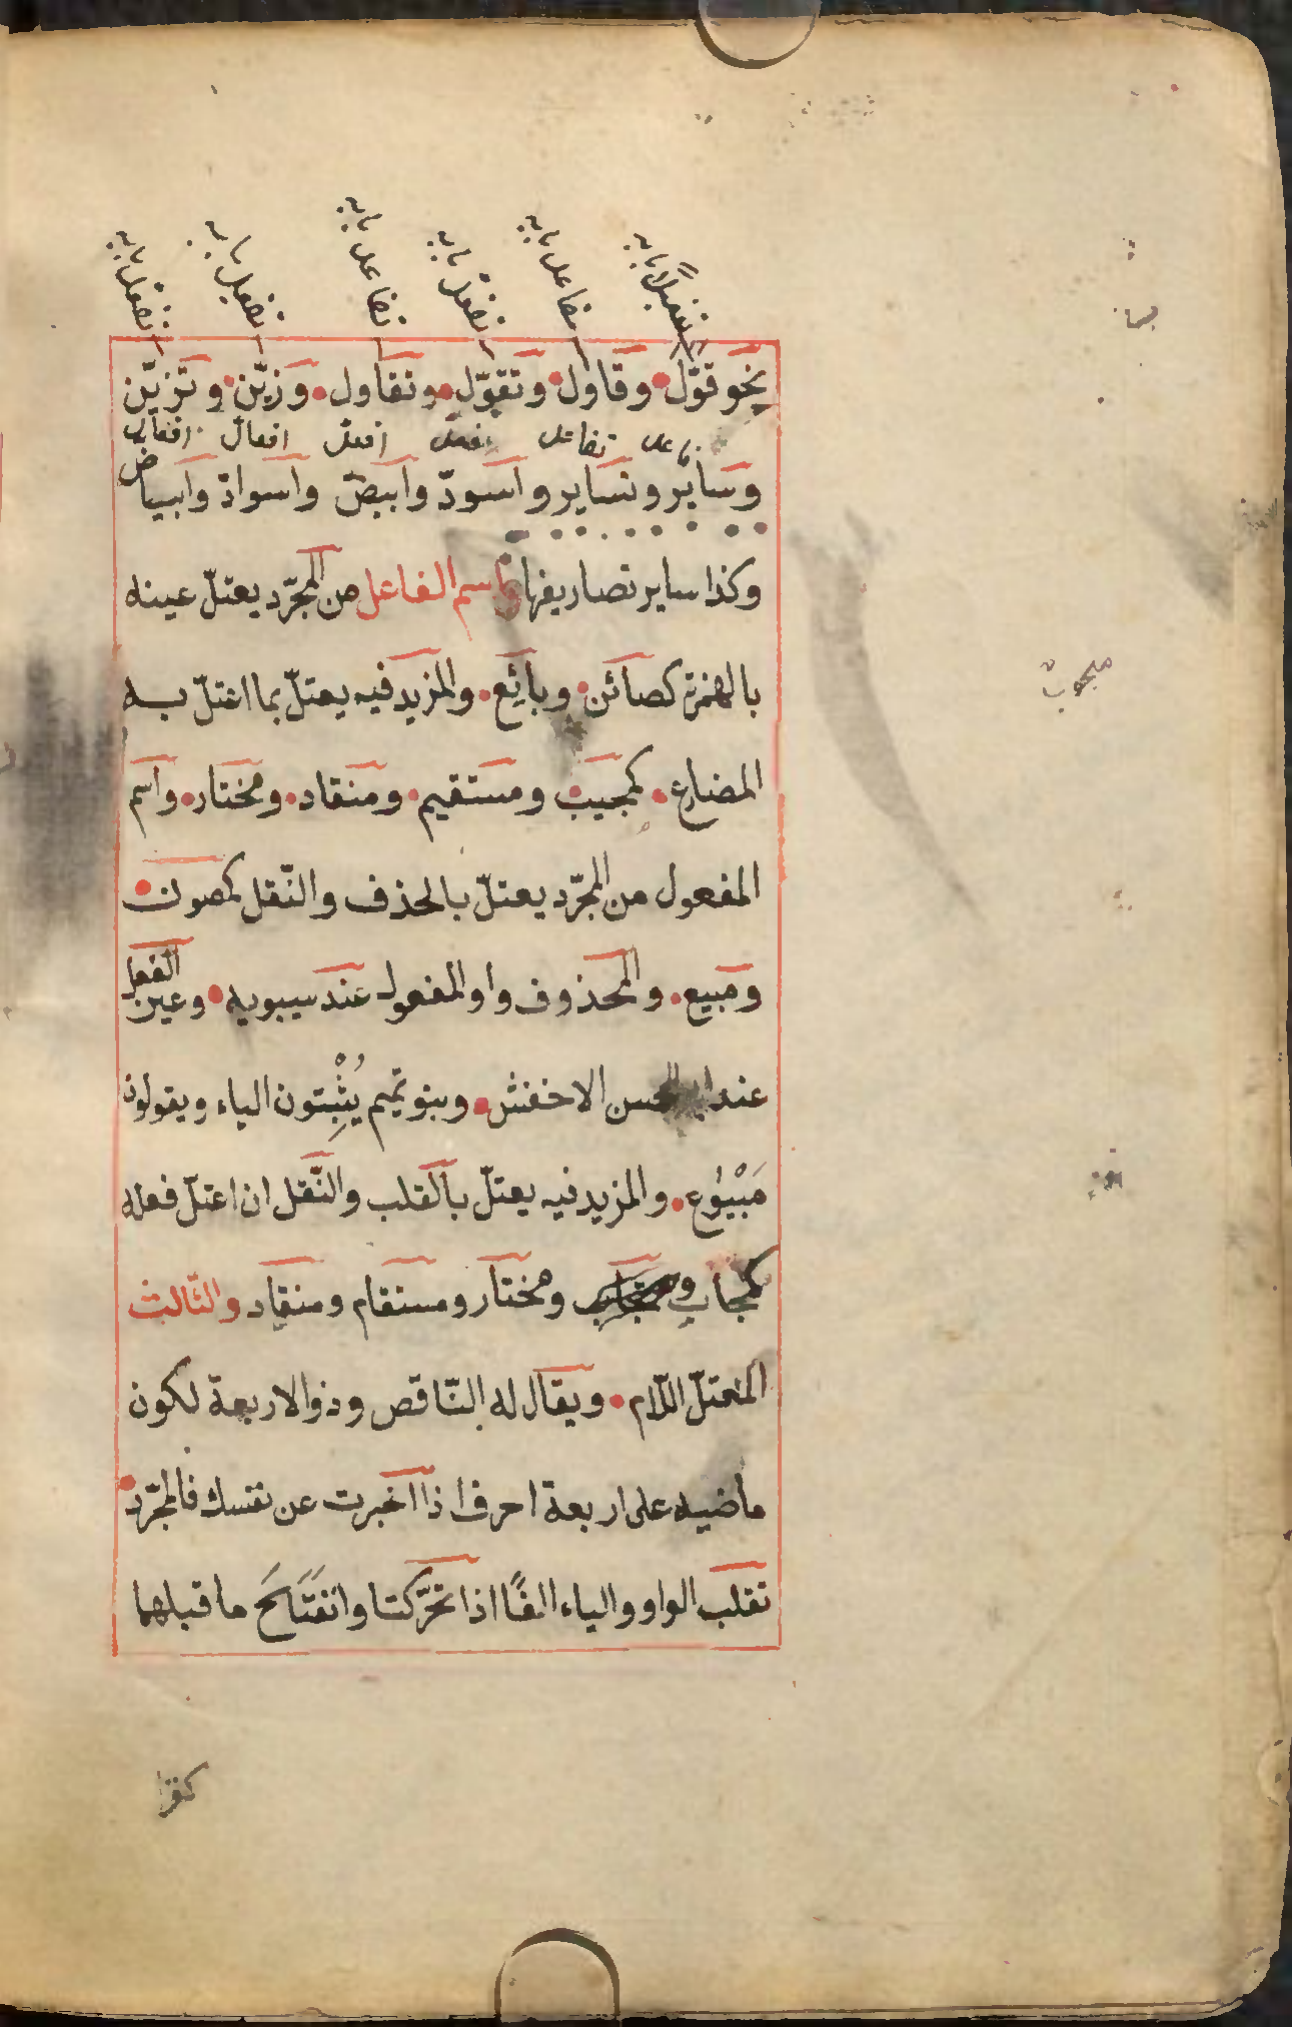 تفعيل بابه
تفاعل بابه
تفعّل بابه
تفاعل بابه
تفعيل بابه
تفعّل بابه
نحو قوّل وقاول وتقوّل وتقاول وزيّن وتزيّن
تفاعل افعلّ افعالّ افعالّ
وساير وتساير واسودّ وابيضّ واسوادّ وابياضّ
وكذا ساير تصاريفها واسم الفاعل من المجرّد يعتلّ عينه
بالهمزة كصائن وبائع والمزيد فيه يعتلّ بما اعتلّ به
المضارع كمجيب ومستقيم ومنقاد ومختار واسم
المفعول من المجرّد يعتلّ بالحذف والنّقل كمصون
ومبيع والمحذوف واو المفعول عند سيبويه وعين الفعل
عند ابي الحسن الاخفش وبنو تميم يُثْبِتون الياء ويقولون
مَبْيُوع والمزيد فيه يعتلّ بالقلب والنّقل ان اعتلّ فعله
كمجاب ومختار ومستقام ومنقاد والثّالث
المعتلّ اللّام ويقال له النّاقص وذو الاربعة لكون
ماضيه على اربعة احرف اذا اخبرت عن نفسك فالمجرّد
تقلب الواو والياء الفًا اذا تحرّكتا وانفَتَاَحَ ما قبلهما